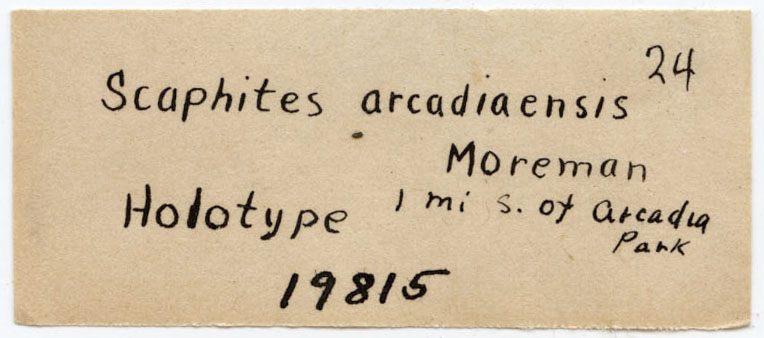 24
Scaphites arcadiaensis
Moreman
Holotype 1 mi s. of Arcadia
Park
19815